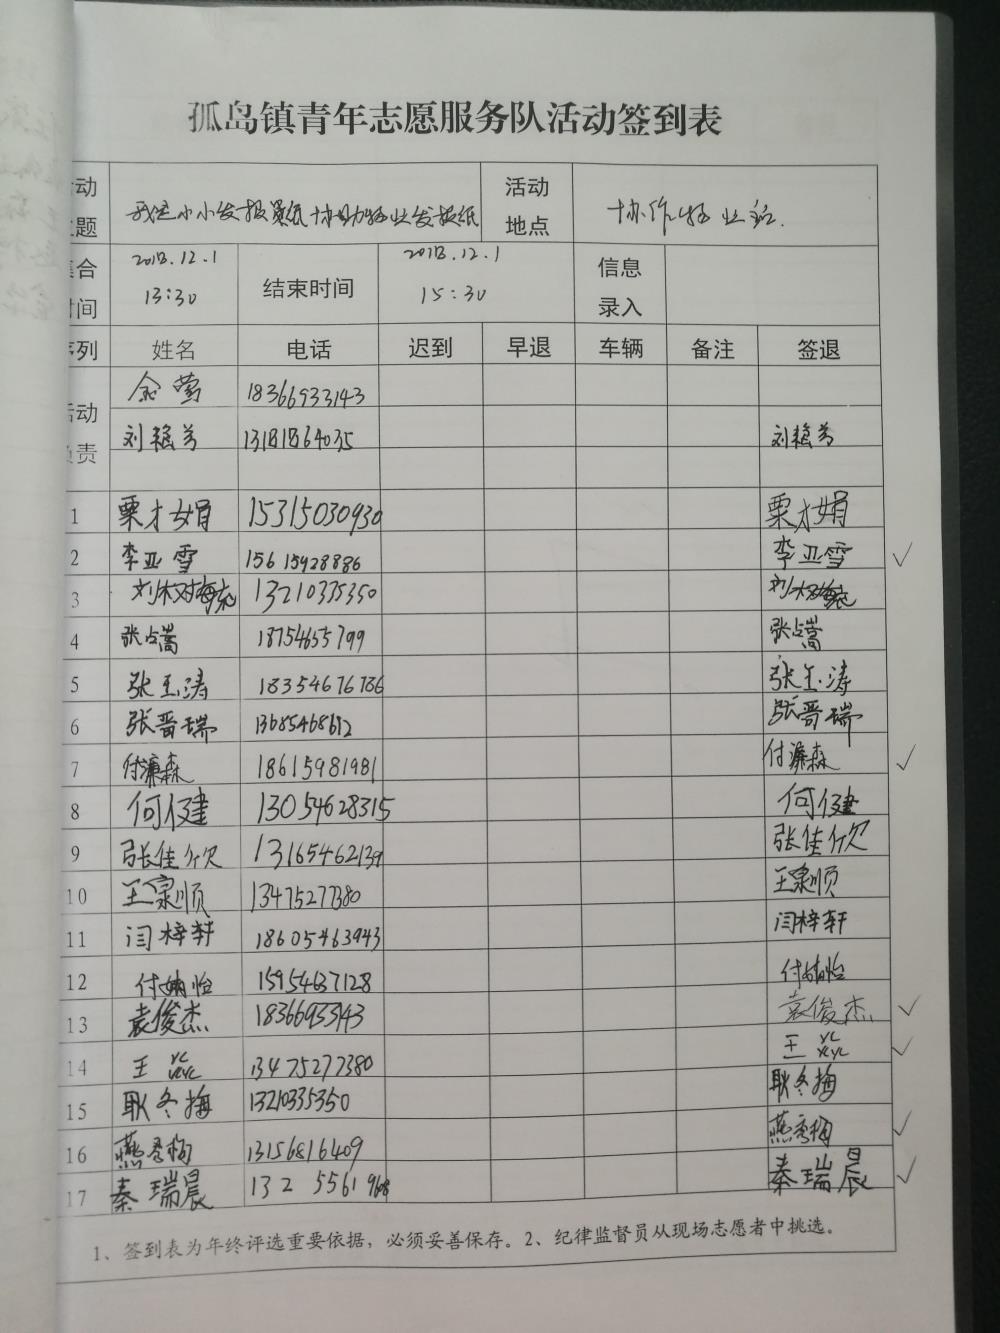 孤岛镇青年志愿服务队活动签到表
动 题 我是小小发报员 协助物业发报纸 活动地点 协作物业站
集合时间 2018.12.1 13:30 结束时间 2018.12.1 15:30 信息录入
序列 姓名 电话 迟到 早退 车辆 备注 签退
活动负责 余莺 18366933143
刘艳芳 13181864035 刘艳芳
1 栗才娟 15315030930 栗才娟
2 李亚雪 15615928886 李亚雪 ✓
3 刘 13210335350 刘
4 张占嵩 18754655799 张占嵩
5 张玉涛 18354676786 张玉涛
6 张晋瑞 13685468612 张晋瑞
7 付濂森 18615981981 付濂森 ✓
8 何仅建 13054628315 何仅建
9 张佳欣 13165462139 张佳欣
10 王泉顺 13475277380 王泉顺
11 闫梓轩 18605463943 闫梓轩
12 付婻怡 15954637128 付婻怡
13 袁俊杰 18366933143 袁俊杰 ✓
14 王 13475277380 王 ✓
15 耿冬梅 13210335350 耿冬梅
16 燕秀梅 13156816409 燕秀梅 ✓
17 秦瑞晨 132 5561 9608 秦瑞晨 ✓
1、签到表为年终评选重要依据，必须妥善保存。2、纪律监督员从现场志愿者中挑选。